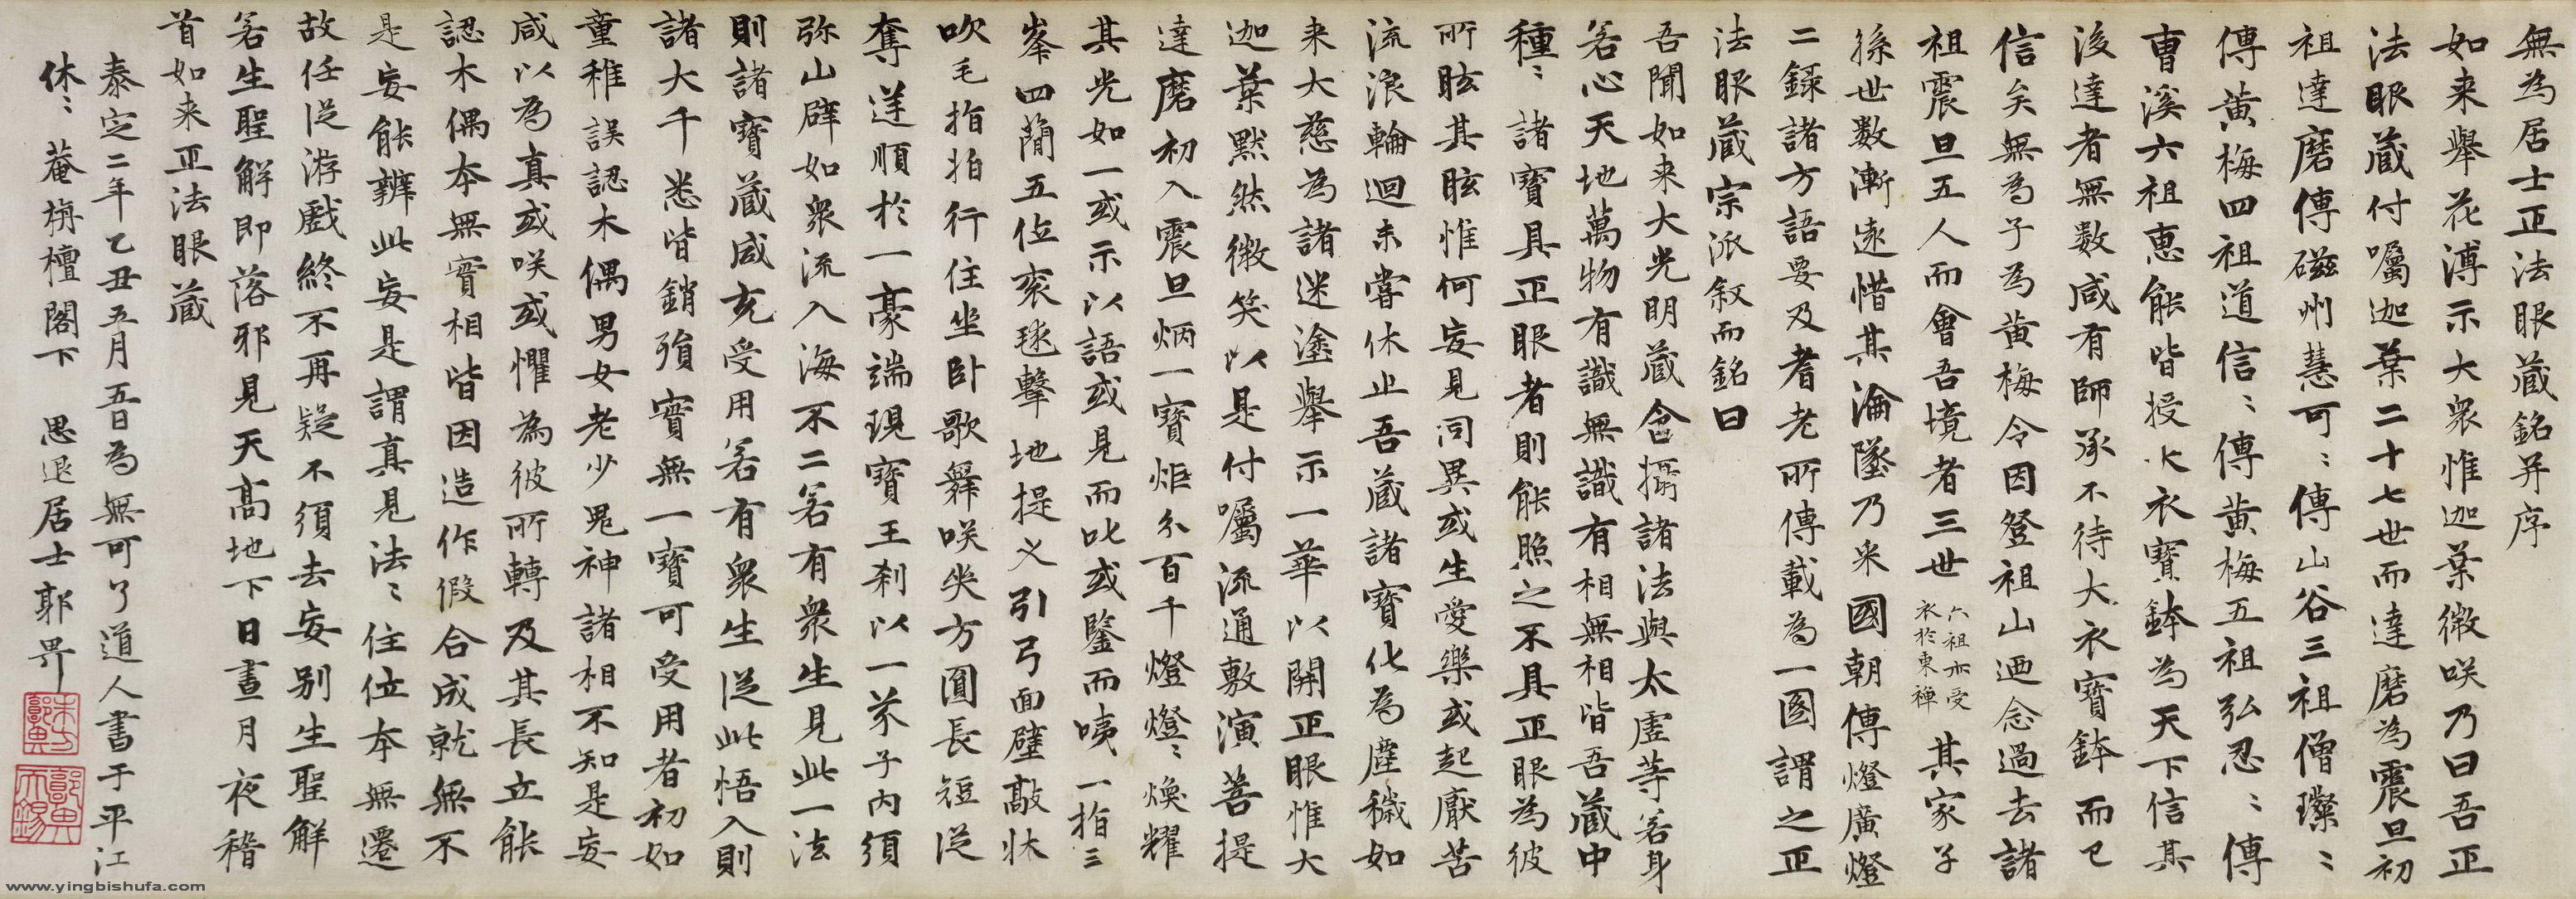 無為居士正法眼蔵銘并序
如来舉花溥示大衆惟迦葉微咲乃曰吾正
法眼蔵付嘱迦葉二十七世而達磨為震旦初
祖達磨傳磁州慧可〻傳山谷三祖僧璨〻
傳黄梅四祖道信〻傳黄梅五祖弘忍〻傳
曹溪六祖恵能皆授大衣寳鉢為天下信其
後達者無数咸有師承不待大衣寳鉢而已
信矣無為子為黄梅令因登祖山迺念過去諸
祖震旦五人而會吾境者三世六祖亦受衣於東禅其家子
孫世数漸遠惜其淪墜乃采國朝傳燈廣燈
二録諸方語要及耆老所傳載為一圖謂之正
法眼蔵宗派叙而銘曰
吾聞如来大光明蔵含攝諸法與太虚等若身
若心天地萬物有識無識有相無相皆吾蔵中
種〻諸寳具正眼者則能照之不具正眼為彼
所眩其眩惟何妄見同異或生愛樂或起厭苦
流浪輪迴未嘗休止吾蔵諸寳化為塵穢如
来大慈為諸迷塗舉示一華以開正眼惟大
迦葉黙然微笑以是付嘱流通敷演菩提
達磨初入震旦炳一寳炬分百千燈燈〻煥耀
其光如一或示以語或見而叱或鑒而咦一指三
峯四蕳五位衮毬擊地提义引弓面壁敲牀
吹毛指拍行住坐卧歌舞咲哭方圓長短從
奪逆順於一豪端現寳王刹以一芥子内須
弥山辟如衆流入海不二若有衆生見此一法
則諸寳蔵咸充受用若有衆生從此悟入則
諸大千悉皆銷殞實無一寳可受用者初如
童稚誤認木偶男女老少鬼神諸相不知是妄
咸以為真或咲或懼為彼所轉及其長立能
認木偶本無實相皆因造作假合成就無不
是妄能辨此妄是謂真見法〻住位本無遷
故任從游戲終不再疑不須去妄别生聖解
若生聖解即落邪見天高地下日晝月夜稽
首如来正法眼蔵
泰定二年乙丑五月五日為無可了道人書于平江
休〻菴栴檀閣下　思退居士郭畀
www.yingbishufa.com